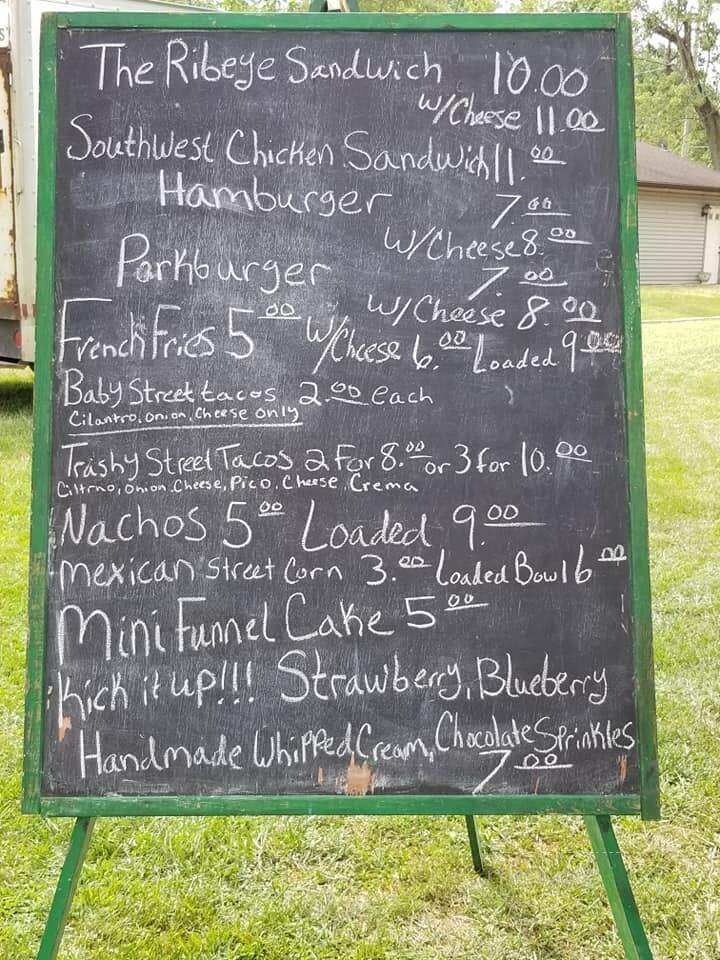 The Ribeye Sandwich 10.00
w/Cheese 11.00
Southwest Chicken Sandwich 11.00
Hamburger 7.00
w/Cheese 8.00
Porkburger 7.00
w/Cheese 8.00
French Fries 5.00 w/Cheese 6.00 Loaded 9.00
Baby Street tacos 2.00 each
Cilantro, Onion, Cheese only
Trashy Street Tacos 2 for 8.00 or 3 for 10.00
Ciltrno, Onion, Cheese, Pico, Cheese, Crema
Nachos 5.00 Loaded 9.00
mexican Street Corn 3.00 Loaded Bowl 6.00
Mini Funnel Cake 5.00
Kick it up!!! Strawberry, Blueberry
Handmade Whipped Cream, Chocolate Sprinkles
7.00